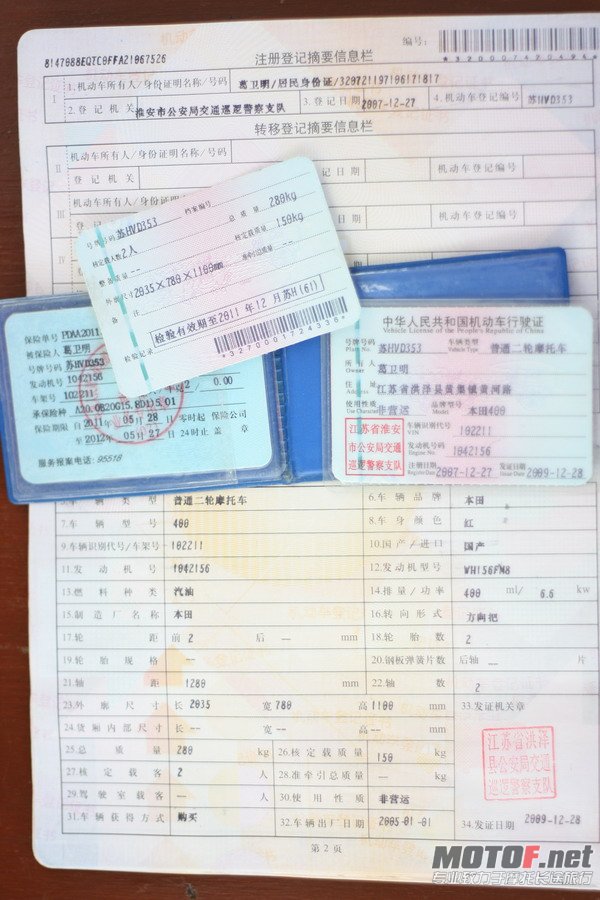 8147088EQTC0FFA21067526 注册登记摘要信息栏 编号:
*320007420494*
I 1.机动车所有人/身份证明名称/号码 葛卫明/居民身份证/320721197106171817
2.登记机关 淮安市公安局交通巡逻警察支队 3.登记日期 2007-12-27 4.机动车登记编号 苏HVD353
转移登记摘要信息栏
II 机动车所有人/身份证明名称/号码
登记机关 日期 机动车登记编号
III 机动车所有人/身份证明名称/号码
机动车登记编号
号牌号码 苏HVD353 档案编号
核定载人数 2人 总质量 280kg
整备质量 -- 核定载质量 150kg
外廓尺寸 2035×780×1100mm 准牵引总质量 --
备注
检验记录 检验有效期至2011年12月苏H(61)
*3270001724336*
保险单号 PDAA2011
被保险人 葛卫明
号牌号码 苏HVD353
发动机号 1042156
车架号 102211
0.00
承保险种
保险期限 自2011年05月28日零时起 保险公司
至2012年05月27日24时止 盖章
服务报案电话: 95518
中华人民共和国机动车行驶证
Vehicle License of the People's Republic of China
号牌号码 Plate No. 苏HVD353 车辆类型 Vehicle Type 普通二轮摩托车
所有人 Owner 葛卫明
住址 Address 江苏省洪泽县黄集镇黄河路
使用性质 Use Character 非营运 品牌型号 Model 本田400
江苏省淮安市公安局交通巡逻警察支队
车辆识别代号 VIN 102211
发动机号码 Engine No. 1042156
注册日期 Register Date 2007-12-27 发证日期 Issue Date 2009-12-28
5.车辆类型 普通二轮摩托车 6.车辆品牌 本田
7.车辆型号 400 8.车身颜色 红
9.车辆识别代号/车架号 102211 10.国产/进口 国产
11.发动机号 1042156 12.发动机型号 WH156FMB
13.燃料种类 汽油 14.排量/功率 400 ml/ 6.6 kw
15.制造厂名称 本田 16.转向形式 方向把
17.轮距 前 2 后 -- mm 18.轮胎数 2
19.轮胎规格 -- 20.钢板弹簧片数 后轴 -- 片
21.轴距 1280 mm 22.轴数 2
23.外廓尺寸 长 2035 宽 780 高 1100 mm 33.发证机关章
24.货厢内部尺寸 长 -- 宽 -- 高 -- mm
25.总质量 280 kg 26.核定载质量 150 kg
27.核定载客 2 人 28.准牵引总质量 -- kg
29.驾驶室载客 -- 人 30.使用性质 非营运
31.车辆获得方式 购买 32.车辆出厂日期 2005-01-01 34.发证日期 2009-12-28
江苏省洪泽县公安局交通巡逻警察支队
第2页
MOTOF.net
专业致力于摩托长途旅行